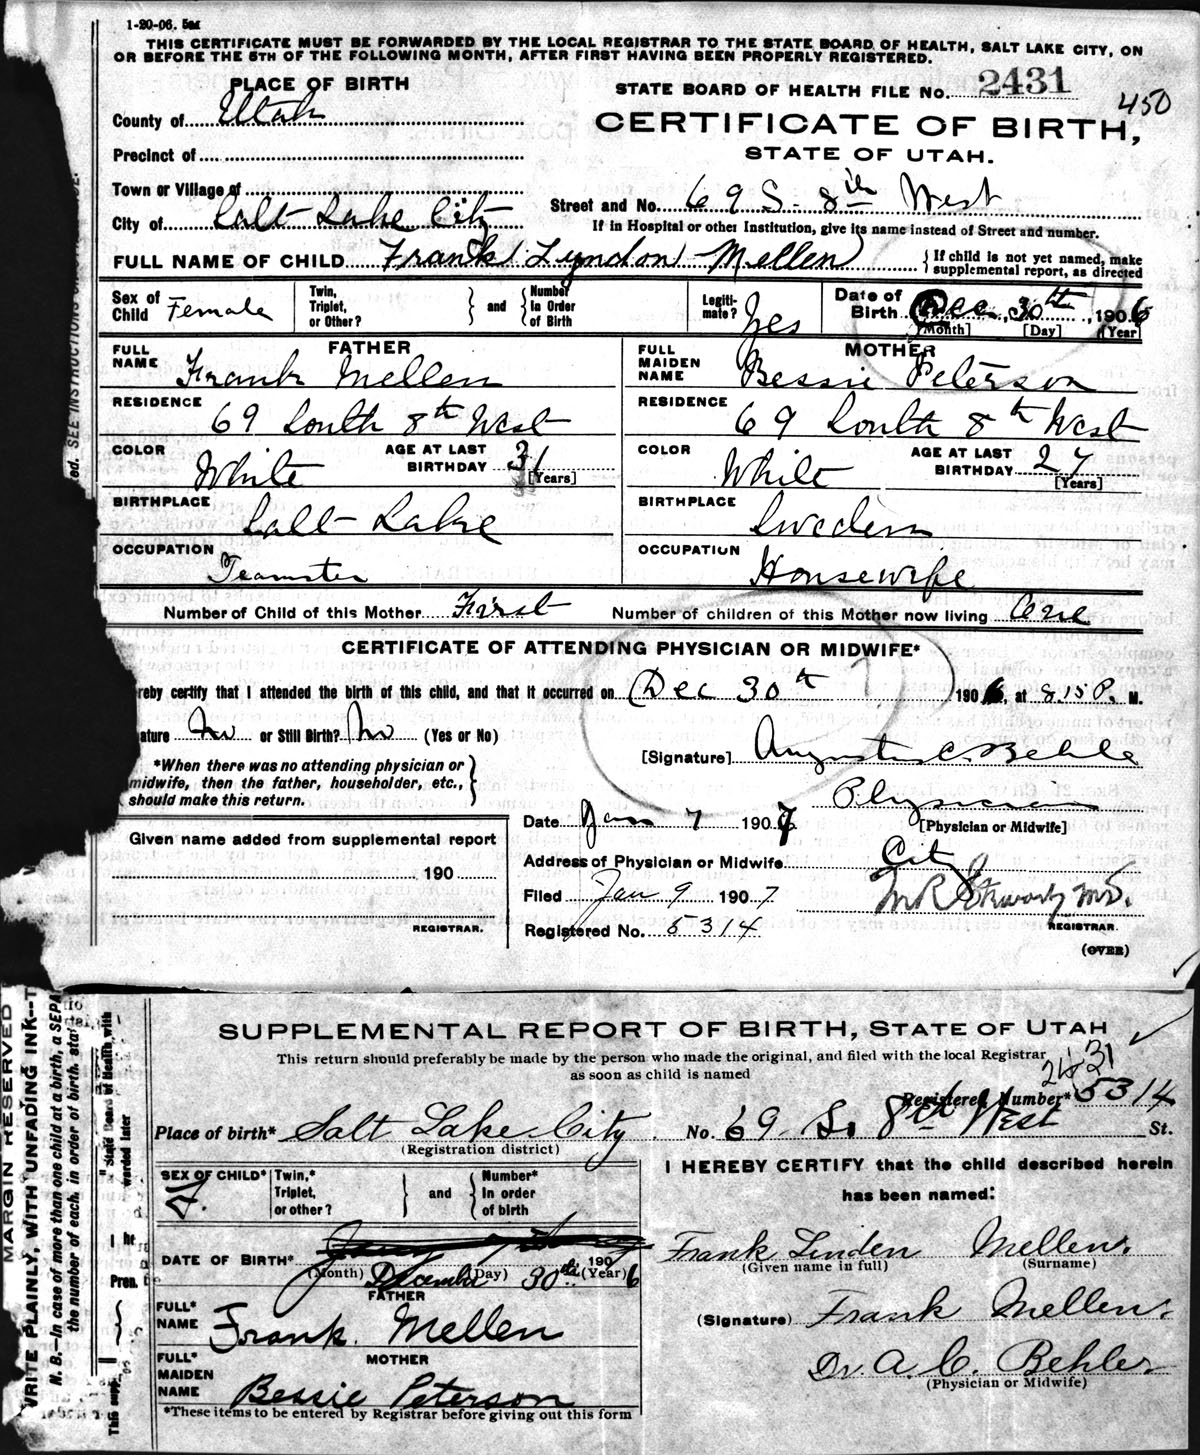 1-20-06. 5m
THIS CERTIFICATE MUST BE FORWARDED BY THE LOCAL REGISTRAR TO THE STATE BOARD OF HEALTH, SALT LAKE CITY, ON
OR BEFORE THE 5TH OF THE FOLLOWING MONTH, AFTER FIRST HAVING BEEN PROPERLY REGISTERED.
PLACE OF BIRTH
STATE BOARD OF HEALTH FILE No. 2431
450
County of Utah
CERTIFICATE OF BIRTH,
STATE OF UTAH.
Precinct of
Town or Village of
City of Salt Lake City
Street and No. 69 S. 8th West
If in Hospital or other Institution, give its name instead of Street and number.
FULL NAME OF CHILD Frank Lyndon Mellen
{If child is not yet named, make
supplemental report, as directed
Sex of Child Female
Twin, Triplet, or Other? } and { Number In Order of Birth
Legiti-mate? Yes
Date of Birth Dec. 30th, 1906
[Month] [Day] [Year]
FATHER
FULL NAME Frank Mellen
RESIDENCE 69 South 8th West
COLOR White
AGE AT LAST BIRTHDAY 31 [Years]
BIRTHPLACE Salt Lake
OCCUPATION Teamster
MOTHER
FULL MAIDEN NAME Bessie Peterson
RESIDENCE 69 South 8th West
COLOR White
AGE AT LAST BIRTHDAY 27 [Years]
BIRTHPLACE Sweden
OCCUPATION Housewife
Number of Child of this Mother First
Number of children of this Mother now living One
CERTIFICATE OF ATTENDING PHYSICIAN OR MIDWIFE*
reby certify that I attended the birth of this child, and that it occurred on Dec 30th 1906, at 8.15 P. M.
ature No or Still Birth? No (Yes or No)
[Signature] Augustus C. Behle
*When there was no attending physician or
midwife, then the father, householder, etc.,
should make this return.
Physician
[Physician or Midwife]
Date Jan 7 1907
Address of Physician or Midwife City
Given name added from supplemental report
190
REGISTRAR.
Filed Jan 9 1907
REGISTRAR.
Registered No. 5314
(OVER)
SUPPLEMENTAL REPORT OF BIRTH, STATE OF UTAH
This return should preferably be made by the person who made the original, and filed with the local Registrar
as soon as child is named
2431
Registered Number* 5314
Place of birth* Salt Lake City
(Registration district)
No. 69 S. 8th West St.
SEX OF CHILD* F.
Twin,* Triplet, or other? } and { Number* In order of birth
DATE OF BIRTH* December 30th 1906
(Month) (Day) (Year)
FATHER
FULL* NAME Frank Mellen
MOTHER
FULL* MAIDEN NAME Bessie Peterson
*These items to be entered by Registrar before giving out this form
I HEREBY CERTIFY that the child described herein
has been named:
Frank Linden Mellen.
(Given name in full) (Surname)
(Signature) Frank Mellen.
Dr. A. C. Behler
(Physician or Midwife)
MARGIN RESERVED
WRITE PLAINLY, WITH UNFADING INK--T
N. B.—In case of more than one child at a birth, a SEPA
the number of each, in order of birth, stat